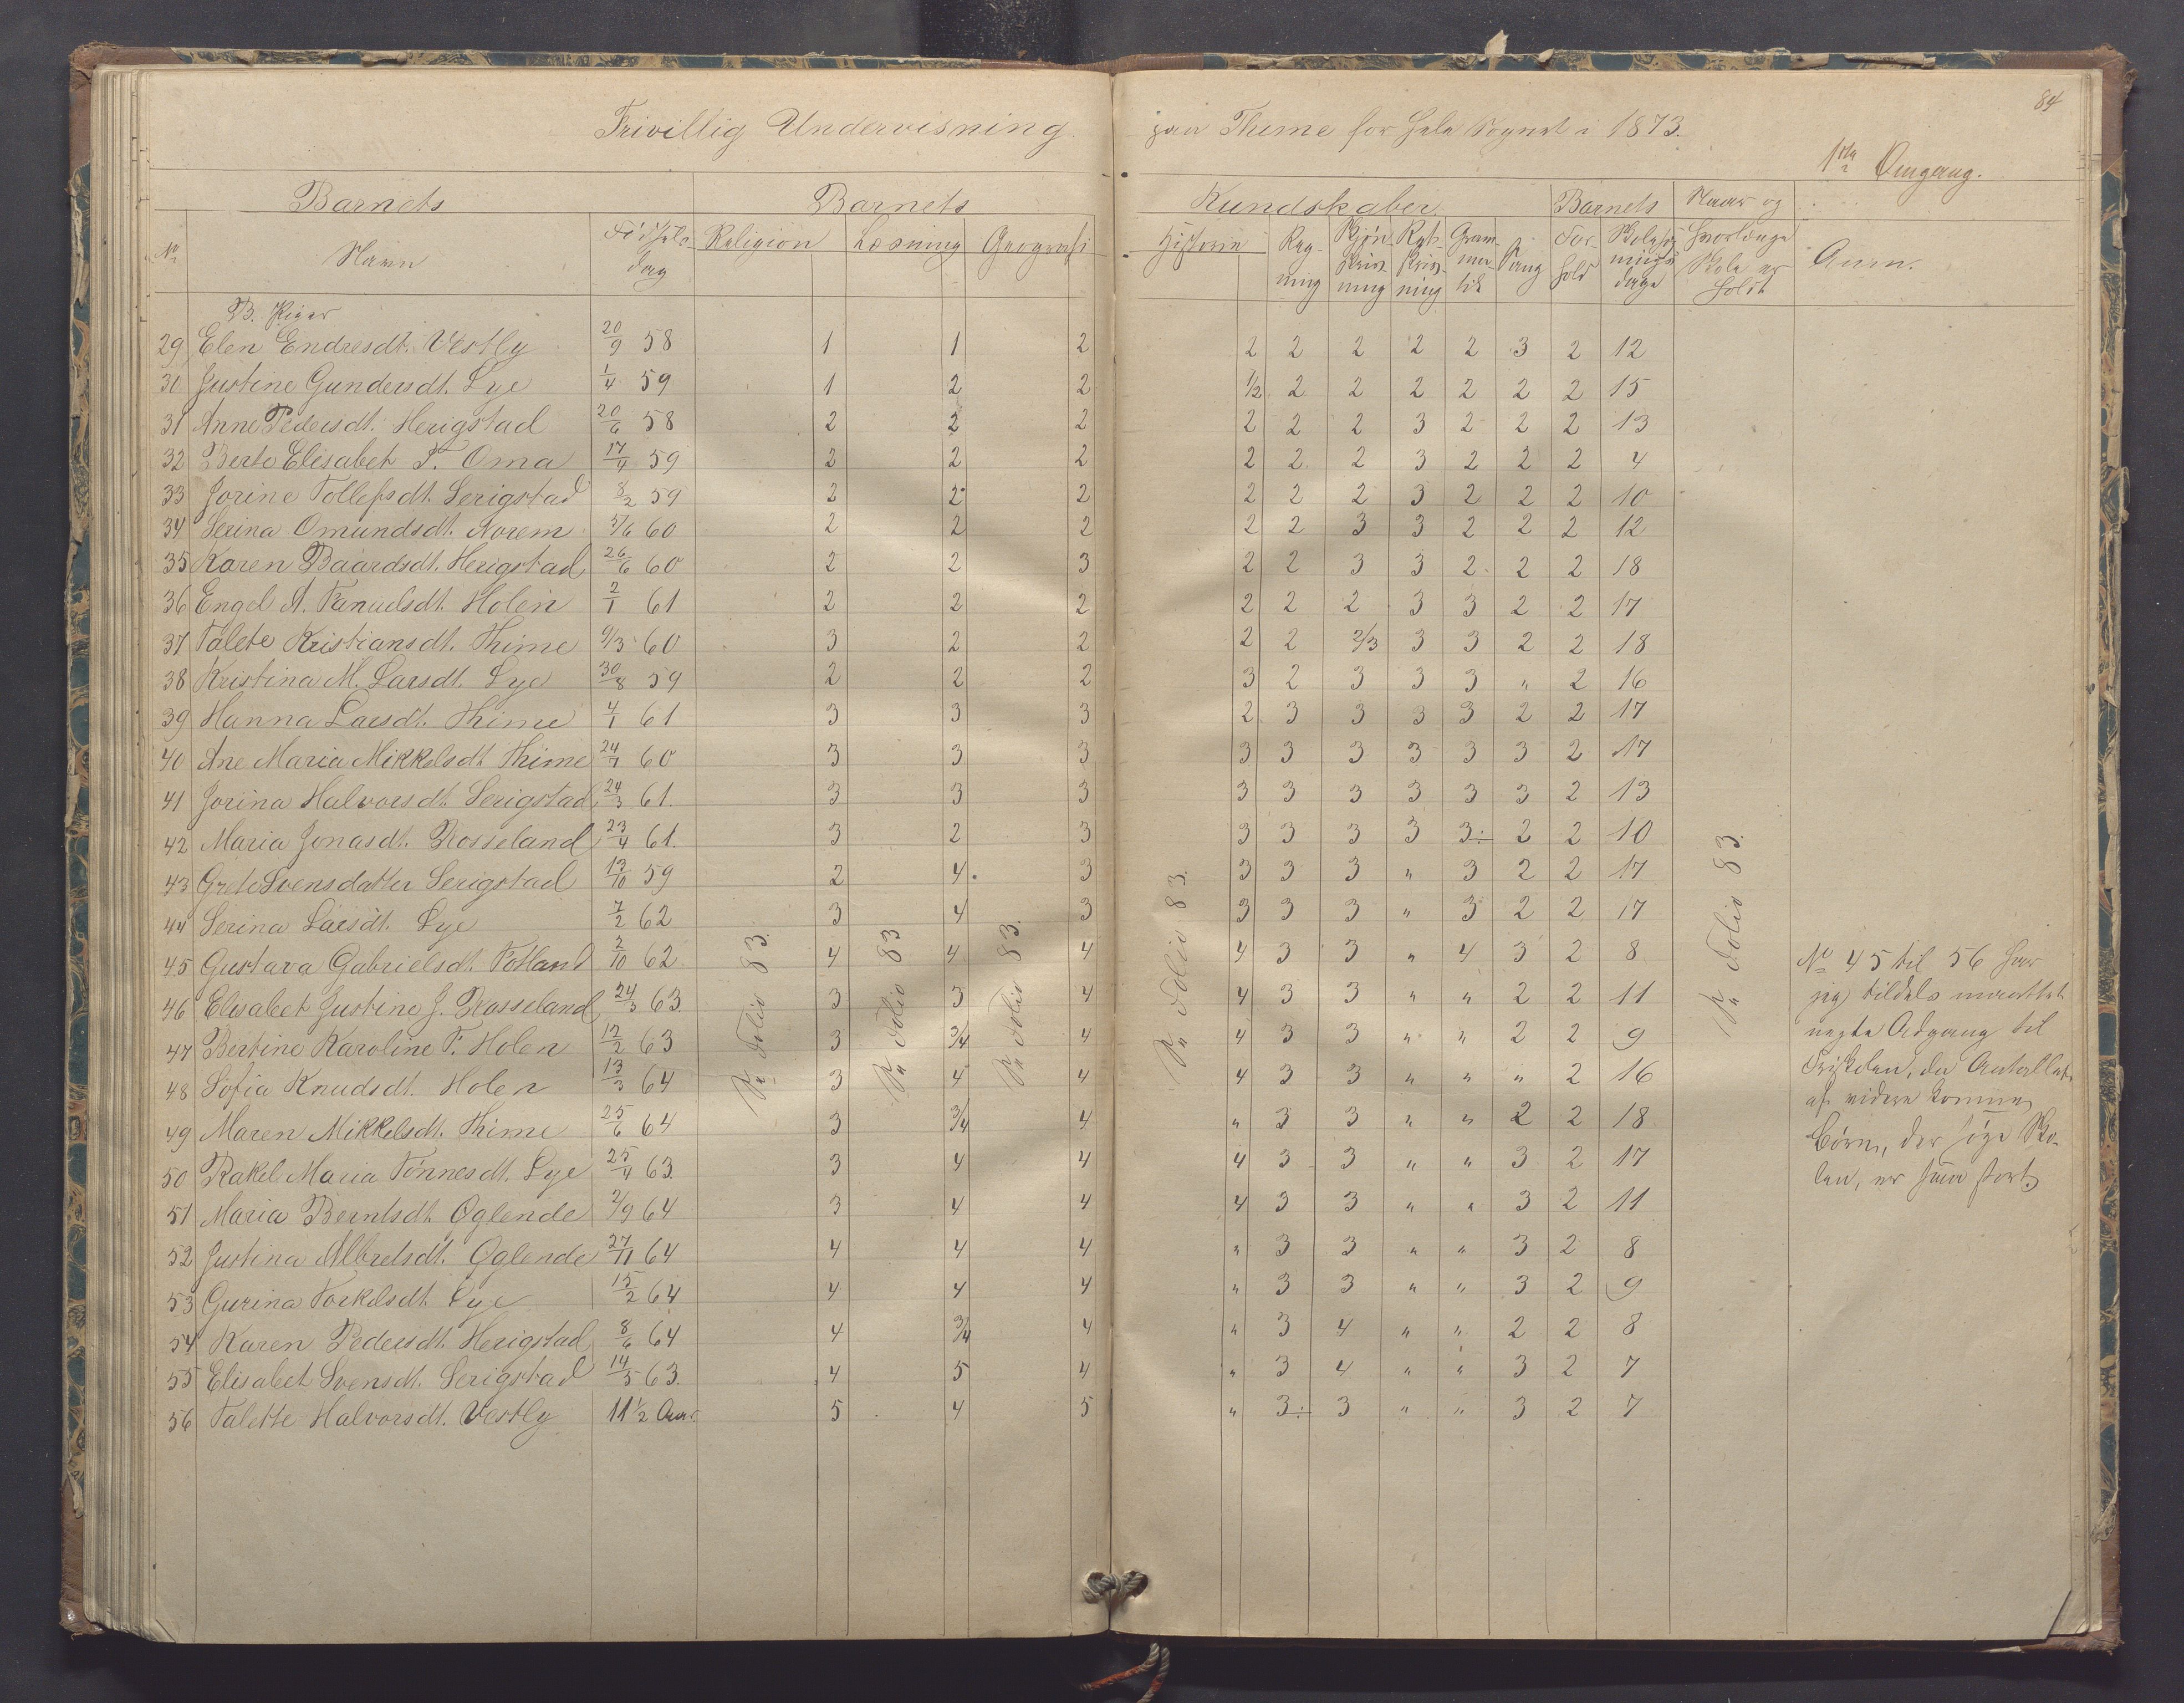 84
Frivillig Undervisning paa Thime for hele Sognet i 1873.
1ste Omgang.
Barnets Barnets Kundskaber Barnets Naar og
No Navn Fødsels- dag Religion Læsning Geografi Historie Reg- ning Skjøn- skriv- ning Ret- skriv- ning Gram- ma- tik Sang For- hold Skolesøg- nings- dage hvorlænge Skole er holdt Anm.
B. Piger
29 Elen Endresdt. Vestly 20/9 58 1 1 2 2 2 2 2 2 3 2 12
30 Justine Gundersdt. Lye 1/4 59 1 2 2 1/2 2 2 2 2 2 2 15
31 Anne Pedersdt. Herigstad 20/6 58 2 2 2 2 2 2 3 2 2 2 13
32 Berte Elisabet T. Oma 17/4 59 2 2 2 2 2 2 3 2 2 2 4
33 Jorine Tollefsdt. Serigstad 8/2 59 2 2 2 2 2 2 3 2 2 2 10
34 Serina Omundsdt. Norem 5/6 60 2 2 2 2 2 3 3 2 2 2 12
35 Karen Baardsdt. Herigstad 26/6 60 2 2 3 2 2 3 3 2 2 2 18
36 Engel A. Tanuelsdt. Holen 2/1 61 2 2 2 2 2 2 3 3 2 2 17
37 Talete Kristiansdt. Thime 9/3 60 3 2 2 2 2 2/3 3 3 2 2 18
38 Kristina M. Larsdt. Lye 30/8 59 2 2 2 3 2 3 3 3 " 2 16
39 Hanna Larsdt. Thime 4/1 61 3 3 3 2 3 3 3 3 2 2 17
40 Ane Maria Mikkelsdt. Thime 24/7 60 3 3 3 3 3 3 3 3 3 2 17
41 Jorina Halvorsdt. Serigstad 24/3 61. 3 3 3 3 3 3 3 3 3 2 13
42 Maria Jonasdt. Rosseland 23/4 61. 3 2 3 3 3 3 3 3÷ 2 2 10
43 Grete Svensdatter Serigstad 13/10 59 2 4 3 3 3 3 " 3 2 2 17
44 Serina Larsdt. Lye 7/2 62 3 4 3 3 3 3 " 3 2 2 17
45 Gustava Gabrielsdt. Fotland 2/10 62 4 4 4 4 3 3 " 4 3 2 8
46 Elisabet Justine J. Rosseland 24/3 63. 3 3 4 4 3 3 " " 2 2 11
47 Bertine Karoline T. Holen 12/2 63 3 3/4 4 4 3 3 " " 2 2 9
48 Sofia Knudsdt. Holen 13/3 64 3 4 4 4 3 3 " " " 2 16
49 Maren Mikkelsdt. Thime 25/6 64 3 3/4 4 " 3 3 " " 2 2 18
50 Rakel Maria Tønnesdt. Lye 25/4 63. 3 4 4 4 3 3 " " 3 2 17
51 Maria Berntsdt. Øglende 2/9 64 3 4 4 4 3 3 " " 3 2 11
52 Justina Albretsdt. Øglende 27/11 64 4 4 4 " 3 3 " " 3 2 8
53 Gurina Torkelsdt. Lye 15/2 64 4 4 4 " 3 3 " " 3 2 9
54 Karen Pedersdt. Herigstad 8/6 64 4 3/4 4 " 3 4 " " 2 2 8
55 Elisabet Svensdt. Serigstad 14/5 63. 4 5 4 " 3 4 " " 3 2 7
56 Talette Halvorsdt. Vestly 11 1/2 Aar 5 4 5 " 3÷ 3 " " 3 2 7
Folio 83.
Folio 83
Folio 83.
Folio 83.
Folio 83.
No 45 til 56 har
jeg tildels maattet
negte Adgang til
Friskolen, da Antallet
af videre komne
Børn, der søge Sko-
len, er saa stort.